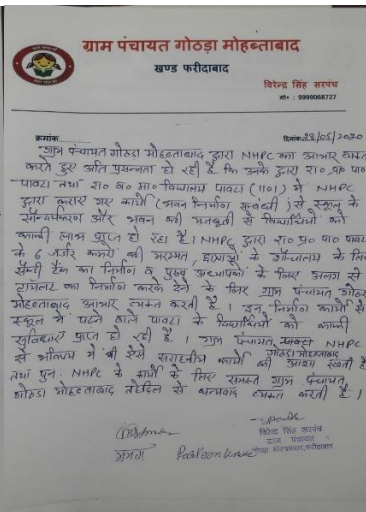 ग्राम पंचायत गोठड़ा मोहब्ताबाद
खण्ड फरीदाबाद
विरेन्द्र सिंह सरपंच
मो० : 9999068727
क्रमांक
दिनांक 28/05/2020
ग्राम पंचायत गोठडा मोहब्ताबाद द्वारा NHPC का आभार व्यक्त
करते हुए अति प्रसन्नता हो रही है कि उनके द्वारा रा० प्रा० पा०
पावटा तथा रा० व० मा० विद्यालय पावटा (1101) में NHPC
द्वारा कराए गए कार्यों (भवन निर्माण सम्बन्धी) से स्कूल के
सौन्दर्यकरण और भवन की मजबूती से विद्यार्थियों को
काफी लाभ प्राप्त हो रहा है। NHPC द्वारा रा० प्र० पा० पावटा
के 6 जर्जर कमरों की मरम्मत, छात्राओं के शौचालय के लिए
सेफ्टी टैंक का निर्माण व पुरुष अध्यापकों के लिए अलग से
टॉयलेट का निर्माण करके देने के लिए ग्राम पंचायत गोठडा
मोहब्ताबाद आभार व्यक्त करती है। इन निर्माण कार्यों से
स्कूल में पढने वाले पावटा के विद्यार्थियों को काफी
सुविधाएं प्राप्त हो रही है। ग्राम पंचायत NHPC
गोठडा मोहब्ताबाद
से भविष्य में भी ऐसे सराहनीय कार्यों की आशा रखती है
तथा पुन: NHPC के कार्यों के लिए समस्त ग्राम पंचायत
गोठडा मोहब्ताबाद तहेदिल से धन्यवाद व्यक्त करती है।
विरेन्द्र सिंह सरपंच
ग्राम पंचायत
गोठडा मोहब्ताबाद, फरीदाबाद